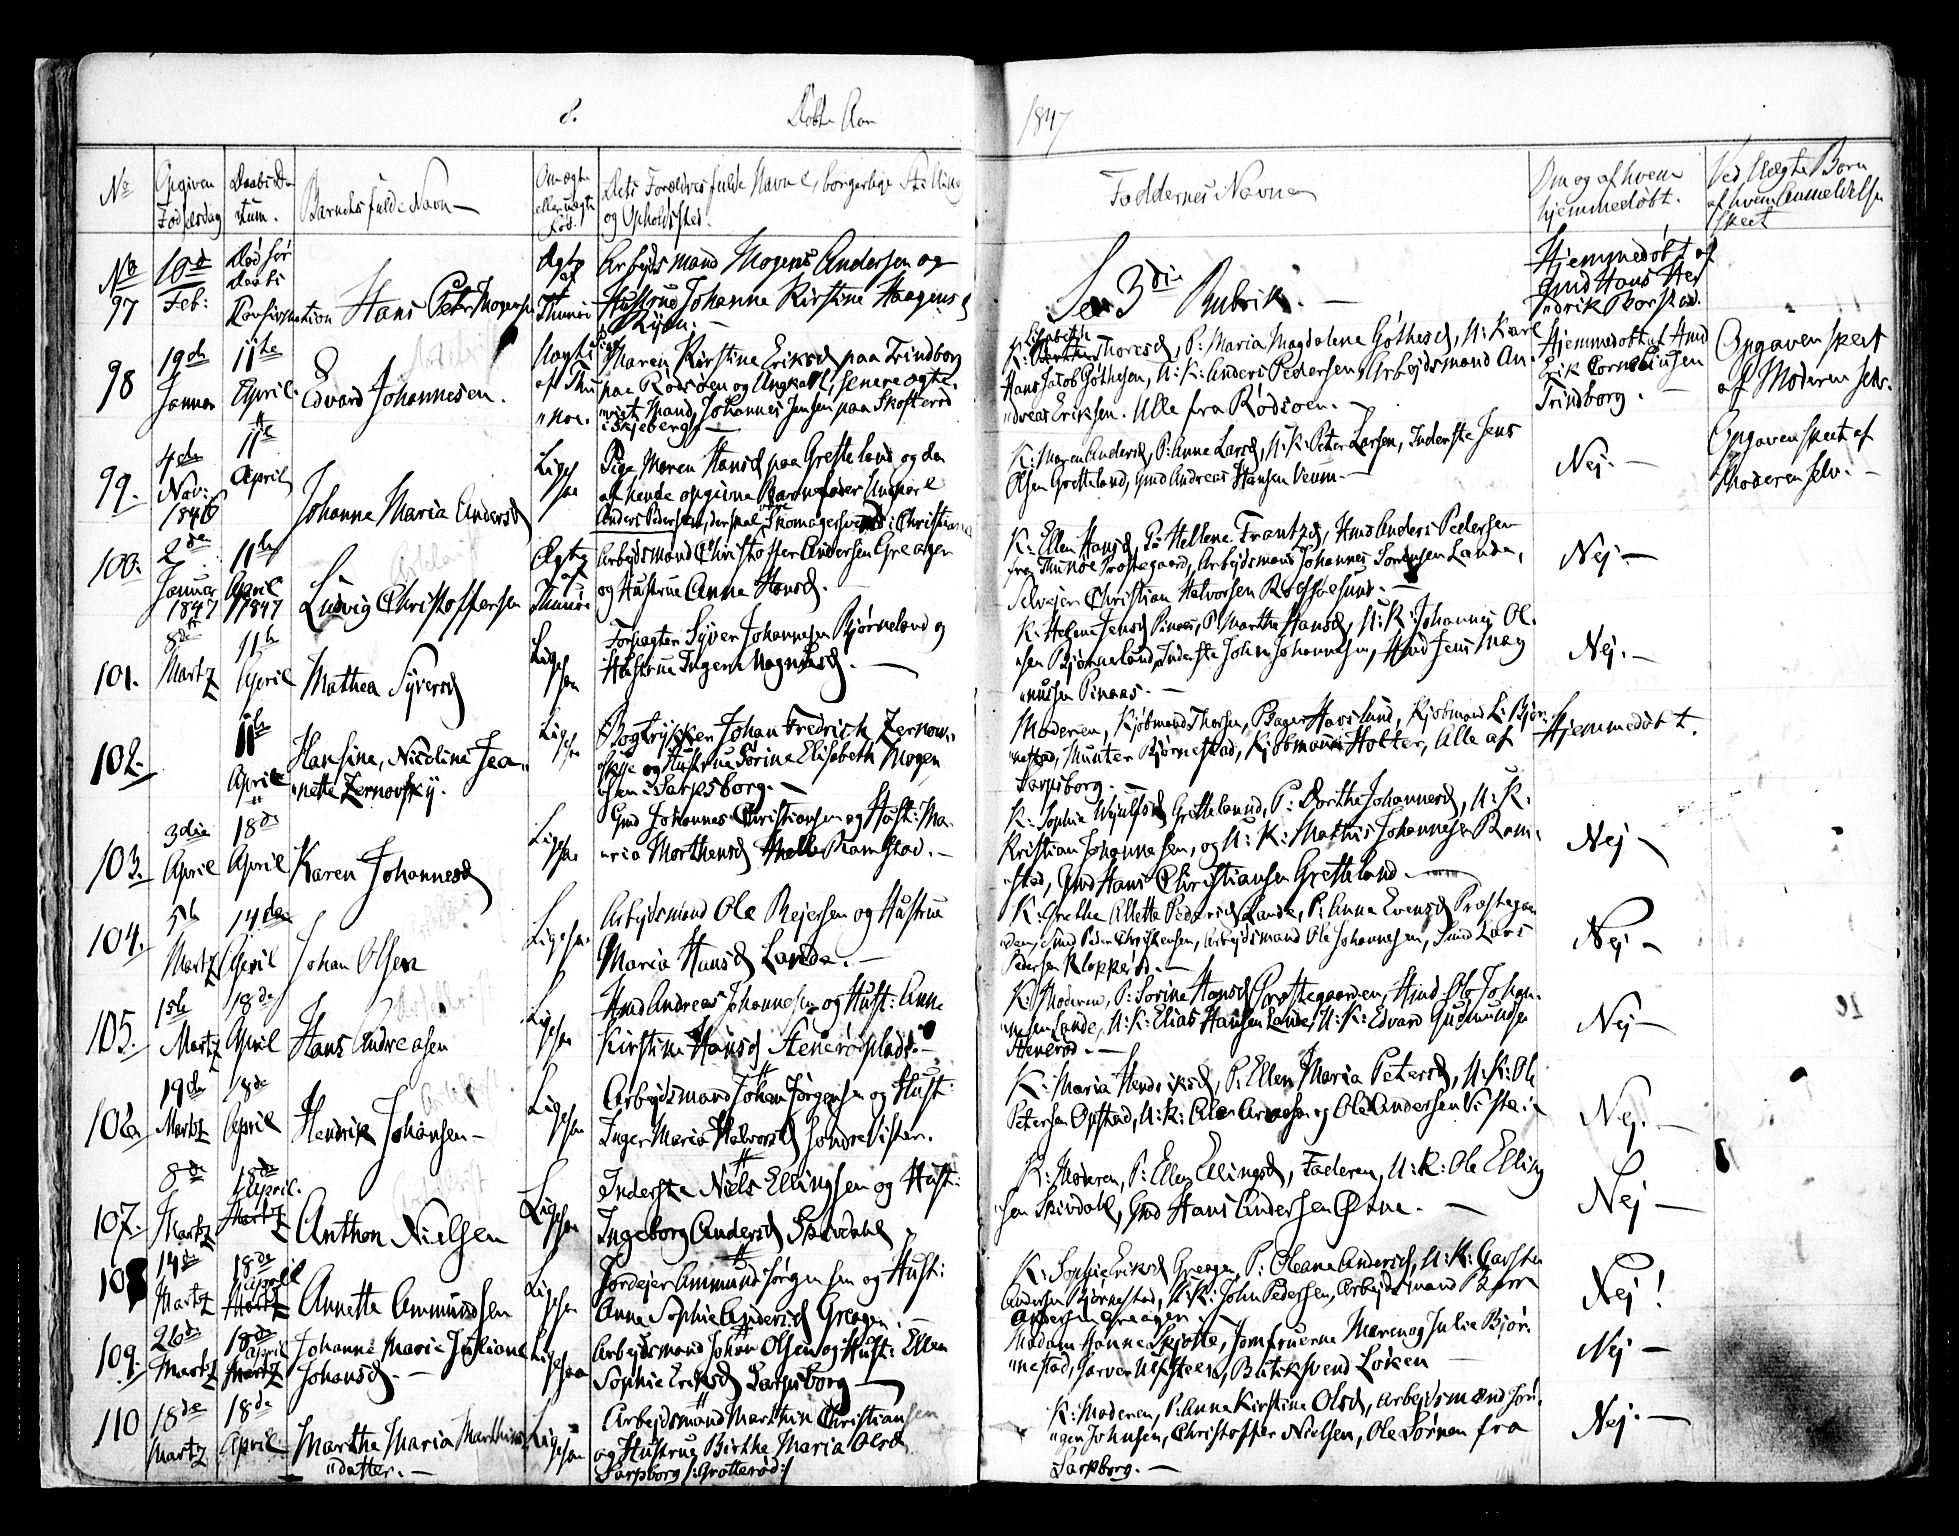 8.
Døbte Aar
1847
No
Opgiven Fødselsdag
Daabs Datum.
Barnets fulde Navn
Om ægte eller uægte Født
Dets Forældres fulde Navne, borgerlige Stilling og Opholdssted.
Faddernes Navne
Om og af hvem hjemmedøbt.
Ved Uægte Børn af hvem Anmeldelsen skeet
No 97
10d Feb:
Død før Daabs Confirmation
Hans Peter Mogensen
Ægte af Thunø
Arbeidsmand Mogens Andersen og
Hustrue Johanne Kirstine Haagensd
Se 3die Rubrik.
Hjemmedøbt af
Gmd Hans Hendrik Borstad.
98
19de Januar
11te April
Edvard Johannesen.
Uægte af Thunøe.
Pige Maren Kirstine Eriksd paa Trindborg
paa Rødsøen og Ungkarl, senere ægteviet Mand, Johannes Jensen paa Skofterød
i Skjeberg
K: Elisabeth Thoresd, P: Maria Magdalena Gøthesd, U: Karl
Hans Jakob Gøthesen, U: K: Anders Pedersen, Arbeidsmand Andreas Eriksen. Alle fra Rødsøen.
Hjemmedøbt af Hmd
Erik Corneliussen
Trindborg.
Opgaven skeet
af Moderen selv.
99.
4de Nov: 1846
11te April
Johanne Maria Andersd
Ligesaa
Pige Maren Hansd paa Gretteland og den
af hende opgivne Barnefader Ungkarl
Anders Pedersen, der skal være Skomagersvend i Christiania
K: Maren Andersd, P: Anne Larsd, U: K: Peter Larsen, Inderste Jens
Olsen Gretteland, Gmd Andreas Hansen Veum.
Nej.
Opgaven skeet af
Moderen selv.
100.
2den Januar 1847
11te April 1847
Ludvig Christoffersen
Ægte af Thunøe
Arbeidsmand Christoffer Andersen Greager
og Hustrue Anne Hansd.
K: Ellen Hansd, P: Hellene Frantzd, Hmd Anders Pedersen
fra Thunøe Præstegaard, Arbeidsmand Johannes Sørensen Lande,
Selveier Christian Halvorsen
Nej
101.
8de Martz
11te April
Mathea Syversd
Ligesaa
Forpagter Syver Johannesen Bjørneland og
Hustrue Ingern Magnusd.
K: Helene Jensd Pinaas, P: Marthe Hansd, U: K: Johannes Olsen Bjørneland, Inderste John Johannesen, Hmd Jens Magnussen Pinaas.
Nej.
102.
11te April
Hansine, Nicoline Jeanette Zernovsky.
Ligesaa
Bogtrykker Johan Fredrich Zernovskye og Hustrue Sørine Elisabeth Mogensen Sarpsborg.
Moderen, Kjøbmand Thorsen, Bager Havslund, Kjøbmand L: Bjørnestad, Munter Bjørnestad, Kjøbmand Holter, Alle af
Sarpsborg.
Hjemmedøbt.
103.
3die April
18de April
Karen Johannesd
Ligesaa
Gmd Johannes Christiansen og Hust: Maria Morthensd Ramstad.
K: Sophie Gretteland, P: Dorthe Johannesd, U: K:
Kristian Johannesen, og U: K: Mathis Johannesen Ramstad, Gmd Hans Christiansen Gretteland
Nej
104.
5te Martz
14de April
Johan Olsen
Ligesaa
Arbejdsmand Ole Rejersen og Hustrue
Maria Hansd Lande.
K: Grethe Allette Pedersd Lande, P: Anna Evensd Præstegaarden, Gmd Peder Christensen, Arbejdsmand Ole Johannesen, Gmd Lars
Pedersen Kloppeød.
Nej
105.
15te Martz
18de April
Hans Andreasen
Ligesaa
Hmd Andreas Johannesen og Hust: Anne
Kirstine Hansd Stenerødplads.
K: Moderen, P: Sorine Hansd Præstegaarden, Hmd Ole Johannesen Lande, U: K: Elias Hansen Lande, U: K: Edvard Gudmundsen
Stenerød.
Nej
106
19de Martz
18de April
Hendrik Johansen
Ligesaa
Arbejdsmand Johan Jørgensen og Hust:
Inger Maria Halvorsd Søndre Vister.
K: Maria Hendriksd, P: Ellen Maria Petersd, U: K: Ole
Petersen Opstad, U: K: Arnesen og Ole Andersen Viste
Nej.
107.
8de Martz
18de April. Martz
Anthon Nielsen
Ligesaa
Inderste Niels Ellingsen og Hust:
Ingeborg Andersd Skivdahl
K: Moderen, P: Ellen Ellingsd, Faderen, U: K: Ole Ellingsen Skivdahl, Gmd Hans Andersen
Nej
108
14de Martz
18de April Martz
Annette Ammundsen
Ligesaa
Jordejer Ammund Jørgensen og Hust:
Anne Sophie Andersd Greagen.
K: Sophie Eriksd Greagen, P: Oleane Andersd, U: K: Carsten
Andersen Bjørnestad, U: K: John Pedersen, Arbejdsmand
Andersen Greager.
Nej!
109.
26de Martz
18de April Martz
Johanne Marie Juliane
Johansd.
Ligesaa
Arbejdsmand Johan Olsen og Hust: Ellen
Sophie Eriksd Sarpsborg
Madam Hanne Skjøtte, Jomfruerne Maren og Julie Bjørnestad, Garver Ulfsteen, Butiksvend Løken
Nej
110
18de Martz
18de April
Marthe Maria Marthinsdatter.
Ligesaa
Arbejdsmand Marthin Christiansen
og Hustrue Birthe Maria Olsd
Sarpsborg /: Grotterød :/
K: Moderen, P: Anne Kirstine Olsd, Arbejdsmand Jørgen Johnsen, Christoffer Nielsen, Ole Sørnen fra
Sarpborg.
Nej.